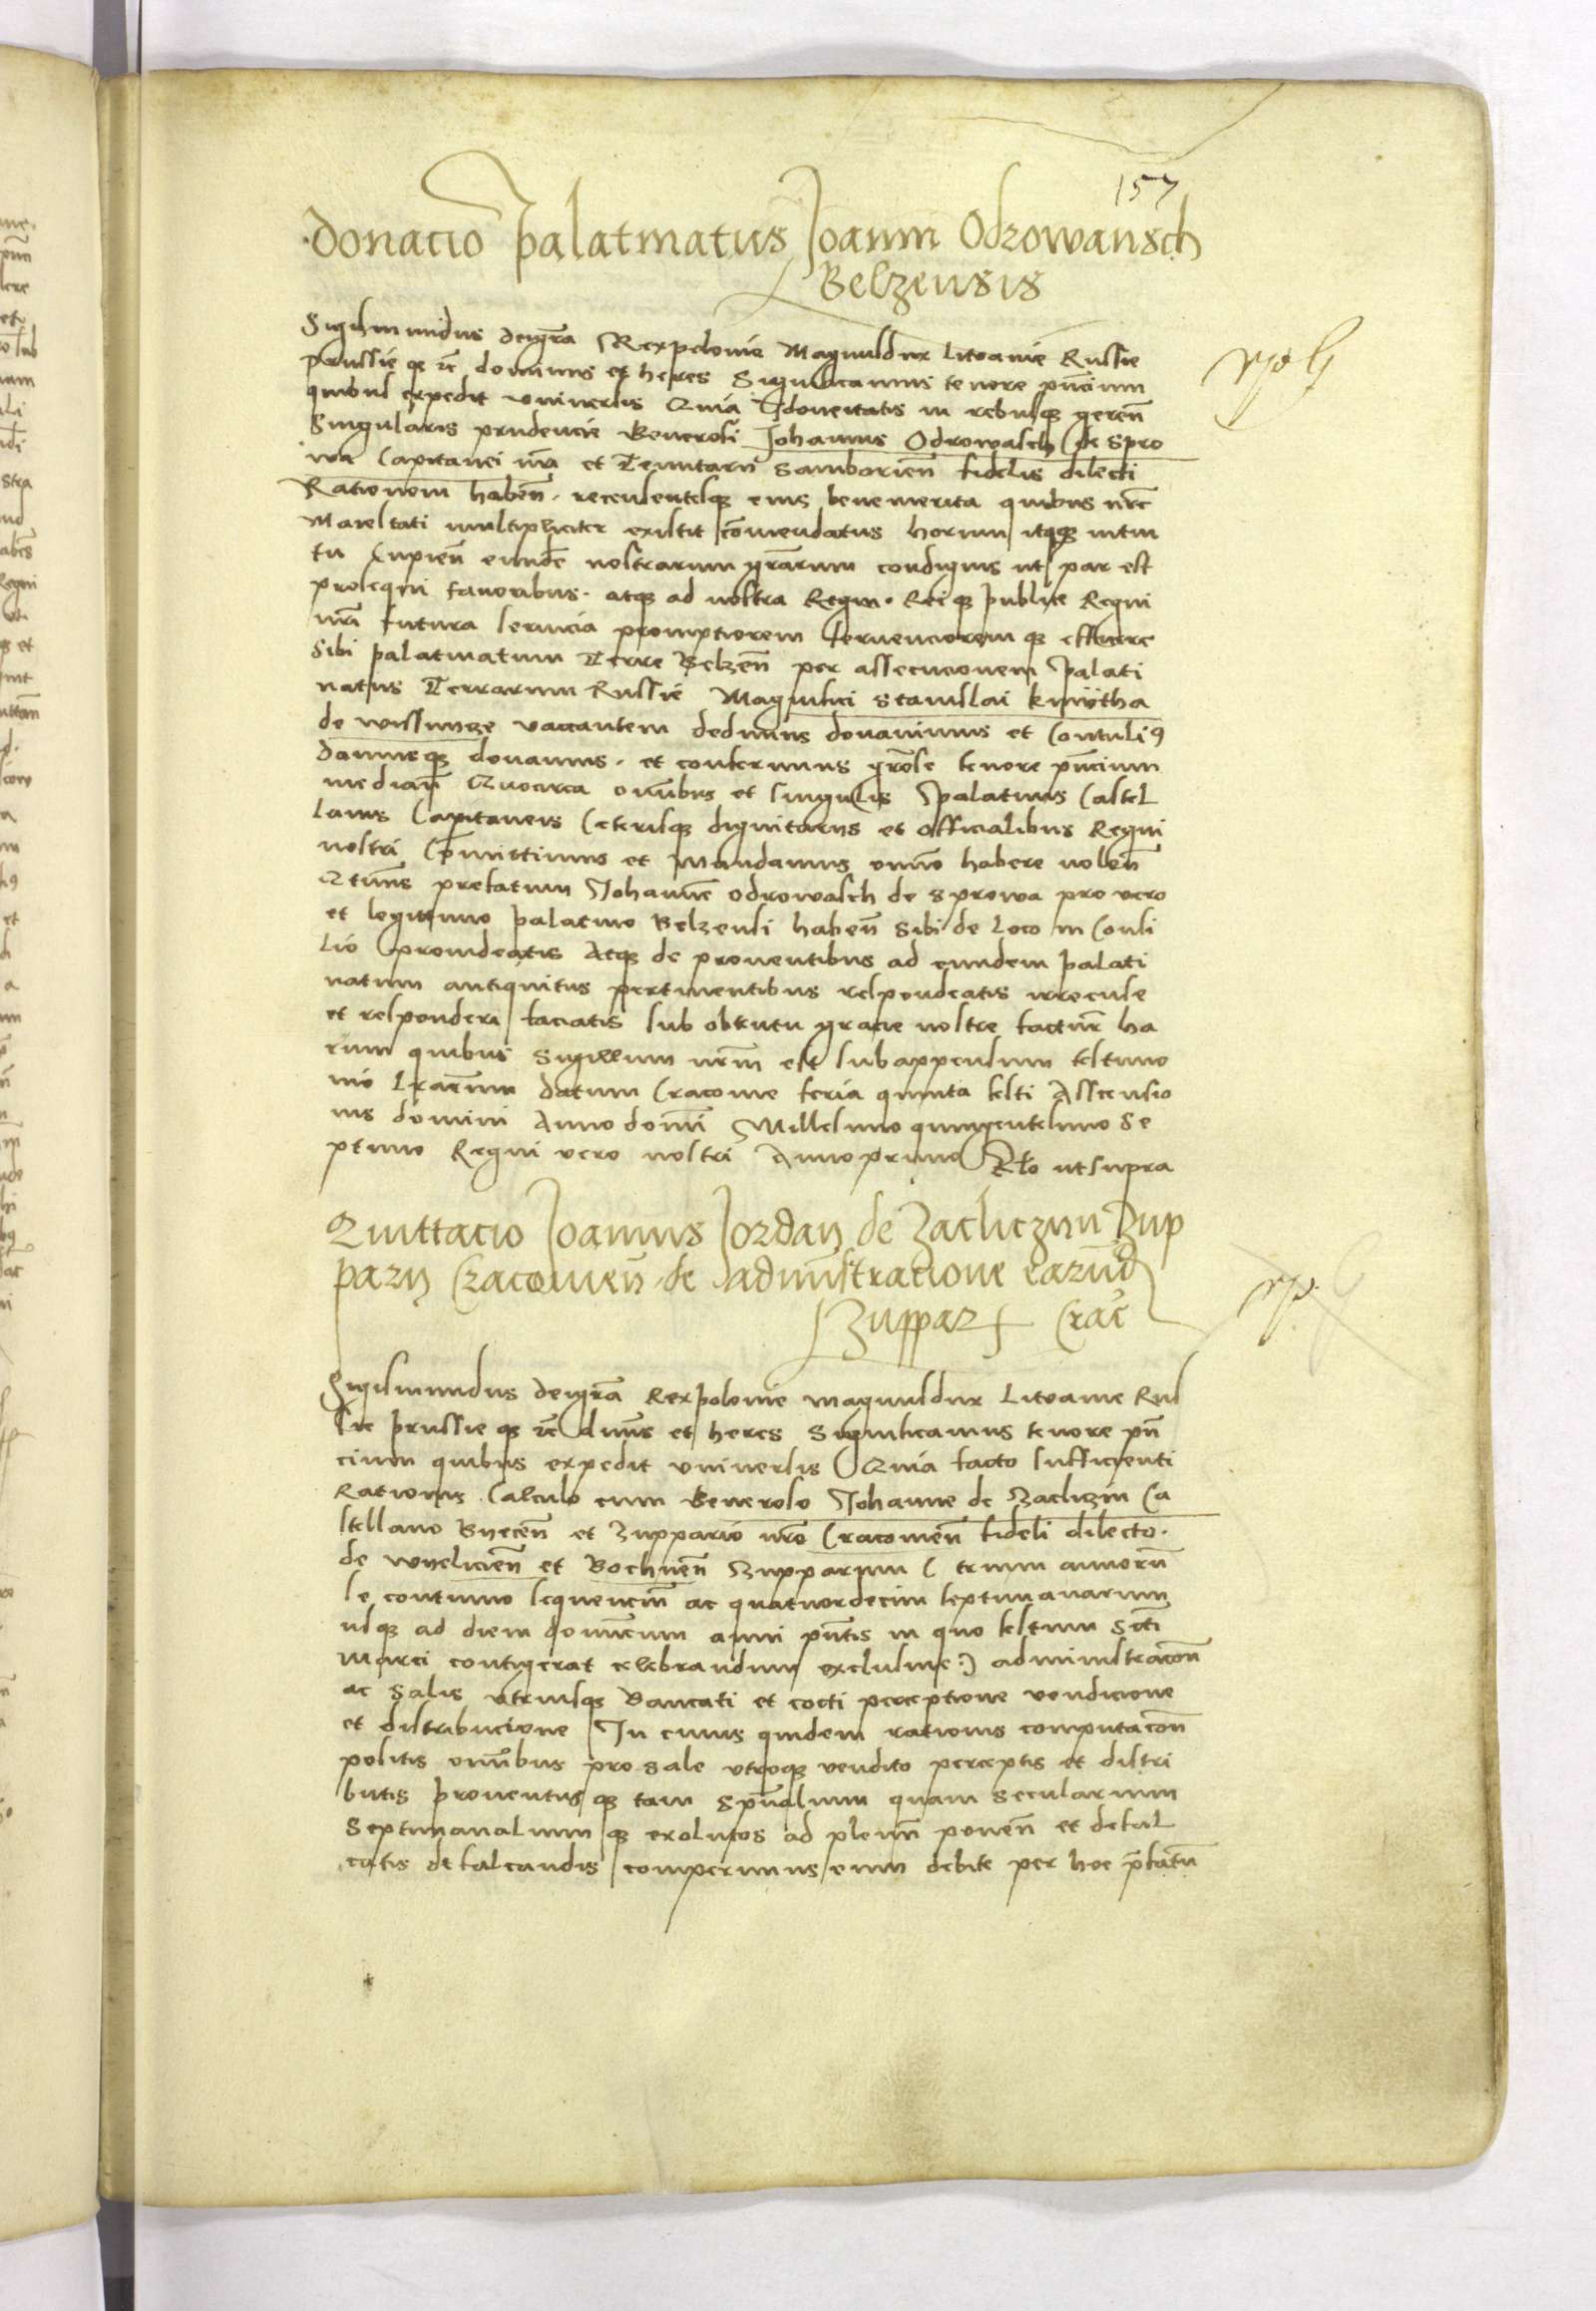 157
Donacio palatinatus Joanni Odrowansch
Belzensis
Sigismundus deigra Rexpolonie Magnusdux Litvanie Russie
prussie qz zc dominus et heres Significamus tenore pncium
quibus expedit universis Quia Idoneitatis in rebusqz geren
Singularis prudencie Generosi Johannis Odrowasch de Spro
wa Capitanei nri et Tenutarii Samborien fidelis dilecti
Rationem haben. recensentesqz eius benemerita quibus nre
Maiestati multipliciter existit comendatus horum itaqz intui
tu Cupien eundem nostrarum grarum condignis ut par est
prosequi favoribus. atqz ad nostra Regni. Reiqz publice Regni
nri futura servicia promptiorem ferventioremqz efficere
Sibi palatinatum Terre Belzen per assecucionem Palati
natus Terrarum Russie Magnifici Stanislai kmytha
de wissnyze vaccantem dedimus donavimus et Contuli9
damusqz donamus. et conferimus grose tenore pncium
median Quocirca omnibus et singulis Palatinis Castel
lanis Capitaneis Ceterisqz dignitariis et officialibus Regni
nostri Comittimus et Mandamus omnino habere volen
Qtinus prefatum Johanne Odrowasch de Sprowa pro vero
et legitimo palatino Belzensi haben Sibi de Loco in Consi
lio provideatis Atqz de proventibus ad eundem palati
natum antiquitus pertinentibus respondeatis
et responderi faciatis sub obtentu gracie nostre factur ha
rum quibus Sigillum nrm est subappensum testimo
nio lrarum datum Cracovie feria quinta festi Ascensio
nis domini Anno domi Millesimo quingentesimo Se
ptimo Regni vero nostri Anno primo Rlo ut supra
Quittacio Joannis Jordan de Zacliczyn Zup
parii Cracovien de administracione earund
Zuppar Crac
Sigismundus deigra Rexpolonie magnusdux Litvanie Rus
sie prussie qz zc dnus et heres Significamus tenore pn
cium quibus expedit universis Quia facto sufficienti
Rationis Calculo cum Generoso Johanne de Zaclizin Ca
stellano Byecen et Zuppario nro Cracovien fideli dilecto.
de wyelicien et Bochnen Zupparum ( trium annorum
se continuo sequencium ac quatuordecim septimanarum
usqz ad diem domicum anni pntis in quo festum Scti
Marci contigerat celebrandum exclusive:) administracon
ac Salis utriusqz Bancati et cocti perceptione vendicione
et distribucione In cuius quidem rationis computacon
positis omibus pro sale utroqz vendito perceptis et distri
butis proventusqz tam spualium quam Secularium
Septimanaliumqz exolutos ad plenum ponen et defal
catis defalcandis comperimus eum debite per hoc pfatum